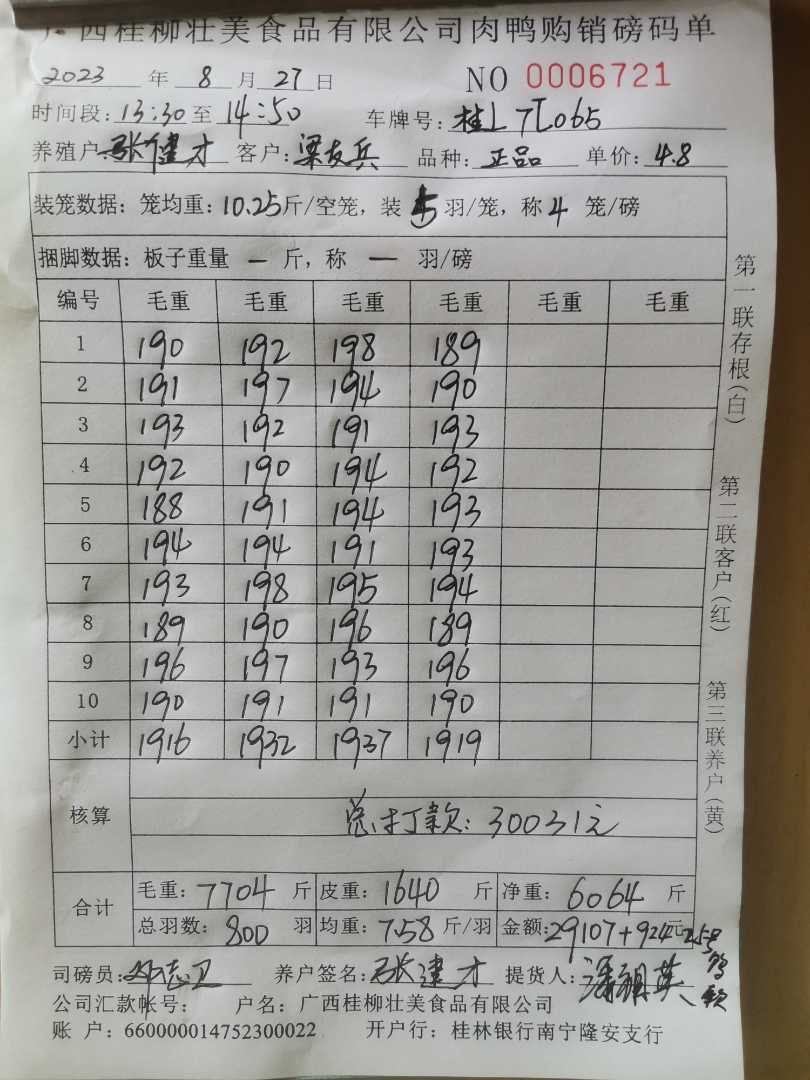 广西桂柳壮美食品有限公司肉鸭购销磅码单
2023 年 8 月 27 日 NO 0006721
时间段: 13:30 至 14:50 车牌号: 桂L
养殖户 张健才 客户: 梁友兵 品种: 正品 单价: 4.8
装笼数据: 笼均重: 10.25 斤/空笼, 装 5 羽/笼, 称 4 笼/磅
捆脚数据: 板子重量 — 斤, 称 — 羽/磅
编号 毛重 毛重 毛重 毛重 毛重 毛重
1 190 192 198 189
2 191 197 194 190
3 193 192 191 193
4 192 190 194 192
5 188 191 194 193
6 194 194 191 193
7 193 198 195 194
8 189 190 196 189
9 196 197 193 196
10 190 191 191 190
小计 1916 1932 1937 1919
核算 总打款: 30031元
合计 毛重: 7704 斤 皮重: 1640 斤 净重: 6064 斤
总羽数: 800 羽 均重: 7.58 斤/羽 金额: 29107+924 元
司磅员: 志卫 养户签名: 张建才 提货人: 潘
公司汇款帐号: 户名: 广西桂柳壮美食品有限公司
账 户: 660000014752300022 开户行: 桂林银行南宁隆安支行
第一联存根(白) 第二联客户(红) 第三联养户(黄)